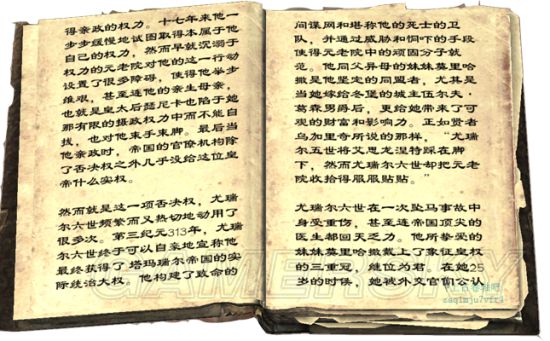 得亲政的权力。十七年来他一
步步缓慢地试图取得本属于他
自己的权力，然而早就沉溺于
权力的元老院对他的这一行动
设置了很多障碍，使得他举步
维艰，甚至连他的亲生母亲，
也就是皇太后瑟尼卡也陷于她
那有限的摄政权力中而不能自
拔，也对他束手束脚。最后当
他亲政时，帝国的官僚机构除
了否决权之外几乎没给这位皇
帝什么实权。
然而就是这一项否决权，尤瑞
尔六世频繁而又热切地动用了
很多次。第三纪元313年，尤瑞
尔六世终于可以自豪地宣称他
最终获得了塔玛瑞尔帝国的实
际统治大权。他构建了致命的
间谍网和堪称他的死士的卫
队，并通过威胁和恫吓的手段
使得元老院中的顽固分子就
范。他同父异母的妹妹莫里哈
撒是他坚定的同盟者，尤其是
当她嫁给冬堡的城主伍尔夫·
葛森男爵后，更给她带来了可
观的财富和影响力。正如贤者
乌加里奇所说的那样，“尤瑞
尔五世将艾思龙涅特踩在脚
下，然而尤瑞尔六世却把元老
院收拾得服服贴贴。”
尤瑞尔六世在一次坠马事故中
身受重伤，甚至连帝国顶尖的
医生都回天乏力。他所挚爱的
妹妹莫里哈撒戴上了象征皇权
的三重冠，继位为君。在她25
岁的时候，她被外交官们公认
GAMERSKY